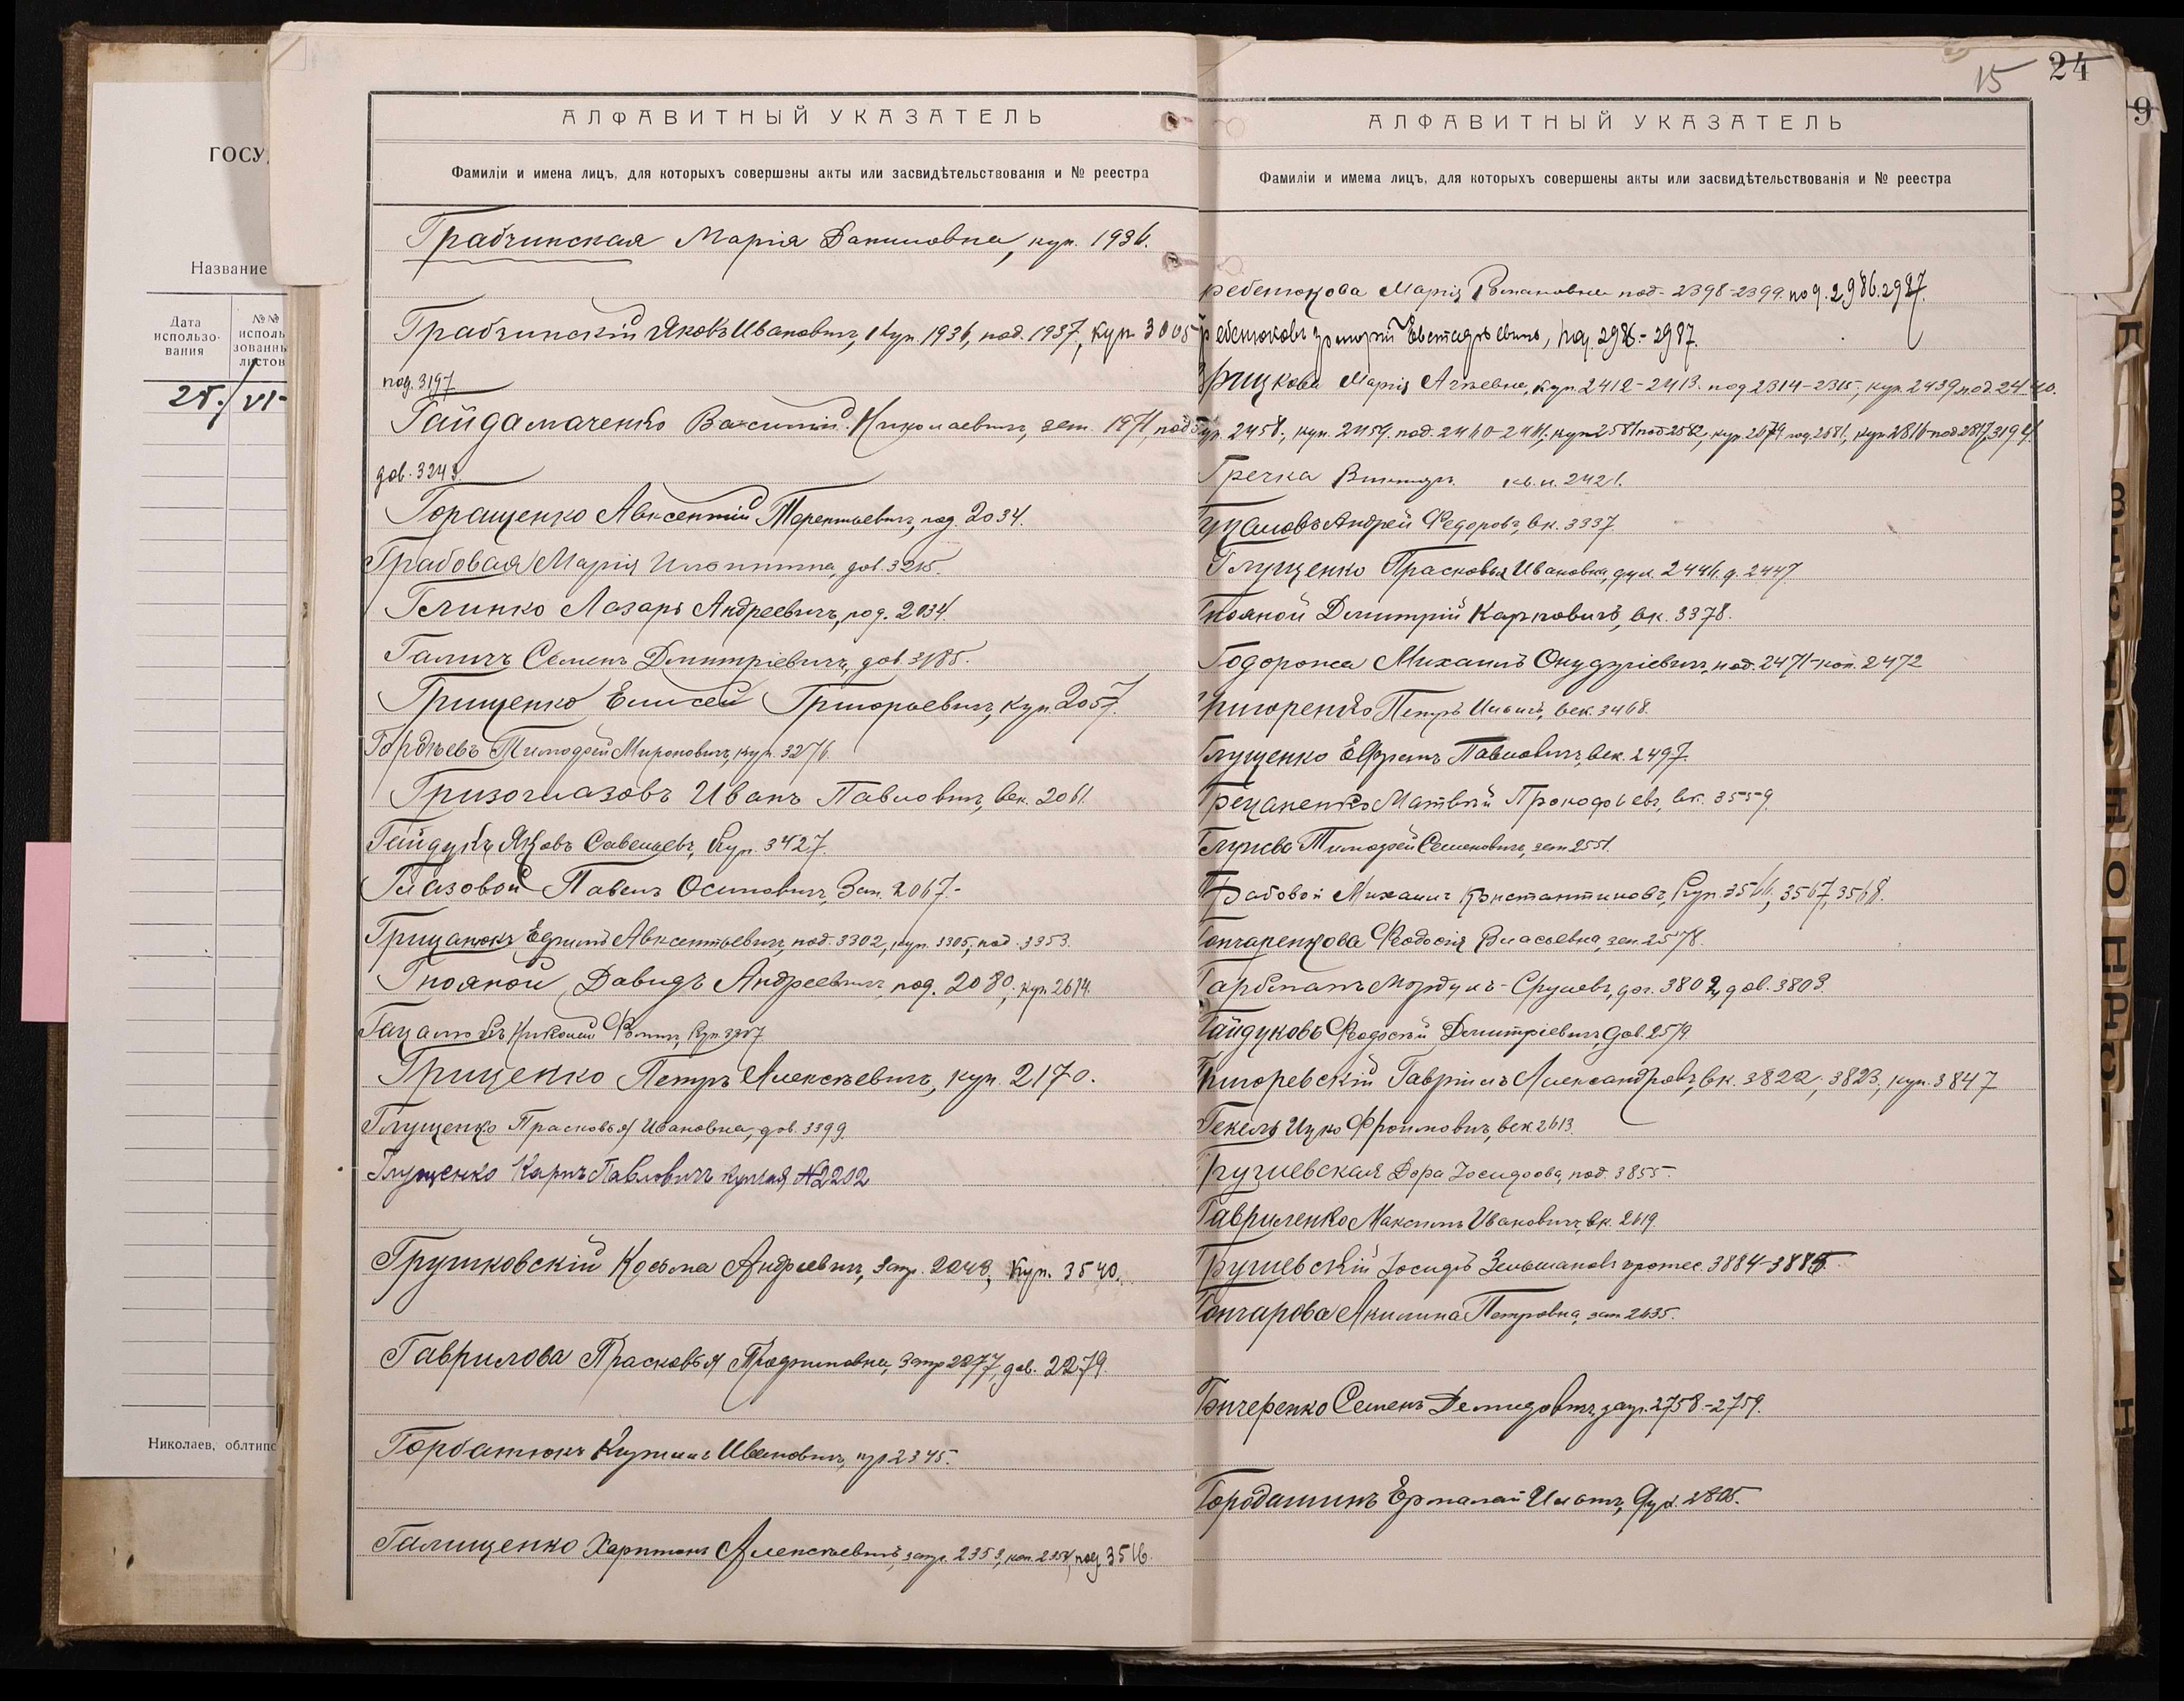 ГОСУ
Название
Дата использо- вания
№№ исполь зованны листов
25./VI-
Николаев, облтипо
АЛФАВИТНЫЙ УКАЗАТЕЛЬ
Фамиліи и имена лицъ, для которыхъ совершены акты или засвидѣтельствованія и № реестра
Грабчинская Марія Даниловна, куп. 1936.
Грабчинскій Яковъ Ивановичъ, куп. 1936, под. 1937, куп. 3005
под. 3197
Гайдамаченко Василій Николаевичъ, зем. 1971, под
дов. 3243.
Горащенко Авксентій Терентьевичъ, под. 2034.
Грабовая Марія дов. 3215.
Глинко Лазарь Андреевичъ, под. 2034.
Галичъ Семенъ Дмитріевичъ, дов. 3185.
Грищенко Елисей Григорьевичъ, куп. 2057.
Гордѣевъ Тимофей Мироновичъ, куп. 3276.
Гризоглазовъ Иванъ Павловичъ, век. 2061.
Гайдукъ Яковъ Савельевъ, куп. 3427.
Глазовой Павелъ Осиповичъ, Зап. 2067.
Грицанюкъ Ефимъ Авксентьевичъ, под. 3302, куп. 3305, под. 3353.
Гнояной Давидъ Андреевичъ, под. 2080, куп. 2614.
Гацаловъ Николай куп. 3357
Грищенко Петръ Алексѣевичъ, куп. 2170.
Глущенко Прасковья Ивановна, дов. 3399.
Глущенко Карпъ Павловичъ купчая №2202
Грушковскій Косьма Андреевичъ, Запр. 2248, Куп. 3540.
Гаврилова Прасковья Трофимовна, Запр 2277, дов. 2279.
Горбатюкъ Ивановичъ, 2345.
Галищенко Харитонъ Алексѣевичъ, запр. 2353, коп. 2354, под. 3516.
15
24
9
АЛФАВИТНЫЙ УКАЗАТЕЛЬ
Фамиліи и имема лицъ, для которыхъ совершены акты или засвидѣтельствованія и № реестра
ребенюкова Марія Романовна под. 2398-2399. под. 2986.2987.
ребенюковъ Евстафьевичъ, под. 2986-2987.
рицкова Марія куп. 2412-2413. под 2314-2315, куп. 2439 под. 2440.
куп. 2458, куп. 2459. под. 2460-2461. куп 2581 под 2582, куп. 2679 под. 2681, куп 2816 под 2817, 3194.
Гречка 2421.
Андрей Федоровъ, вк. 3337.
Глущенко Прасковья Ивановна, дух. 2446. д. 2447.
Гнояной Димитрій Карповичъ, вк. 3378.
Годорожа Михаилъ под. 2471-коп. 2472
Григоренко Петръ Ильичъ, век. 3468.
Глущенко Ефремъ Павловичъ, век. 2497.
Грецаненко Матвѣй Прокофьевъ, вк. 3559.
Тимофей Семеновичъ, зап 2551.
Грабовой Михаилъ Константиновъ, Куп. 3566, 3567, 3568.
Гончаренкова Феодосія Власьевна, зап. 2578.
Гарбманъ Мордухъ-Срулевъ, дог. 3802, дов. 3803.
Гайдуковъ Феодосій Дмитріевичъ, дов. 2579.
Григоревскій Гавріилъ Александровъ, вк. 3822, 3823, куп. 3847
Гекель Ицко Фроимовичъ, век 2613.
Гругиевская Дора Іосифова, под. 3855.
Гавриленко Максимъ Ивановичъ, вк. 2619.
Іосифъ протес. 3884-3885.
Гончарова Акилина Петровна, зап 2635.
Гончеренко Семенъ Демидовичъ, запр. 2758.-2759.
Ермолай дух. 2805.